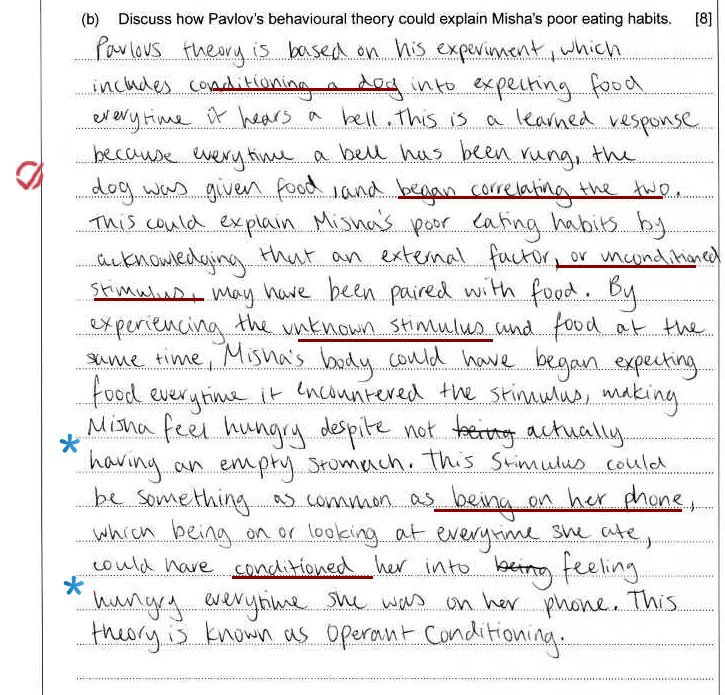 (b) Discuss how Pavlov's behavioural theory could explain Misha's poor eating habits. [8]
Pavlovs theory is based on his experiment, which
includes conditioning a dog into expecting food
everytime it hears a bell. This is a learned response
because everytime a bell has been rung, the
dog was given food, and began correlating the two.
This could explain Misha's poor eating habits by
acknowledging that an external factor, or unconditioned
stimulus, may have been paired with food. By
experiencing the unknown stimulus and food at the
same time, Misha's body could have began expecting
food everytime it encountered the stimulus, making
Misha feel hungry despite not being actually
having an empty stomach. This stimulus could
be something as common as being on her phone,
which being on or looking at everytime she ate,
could have conditioned her into being feeling
hungry everytime she was on her phone. This
theory is known as Operant Conditioning.